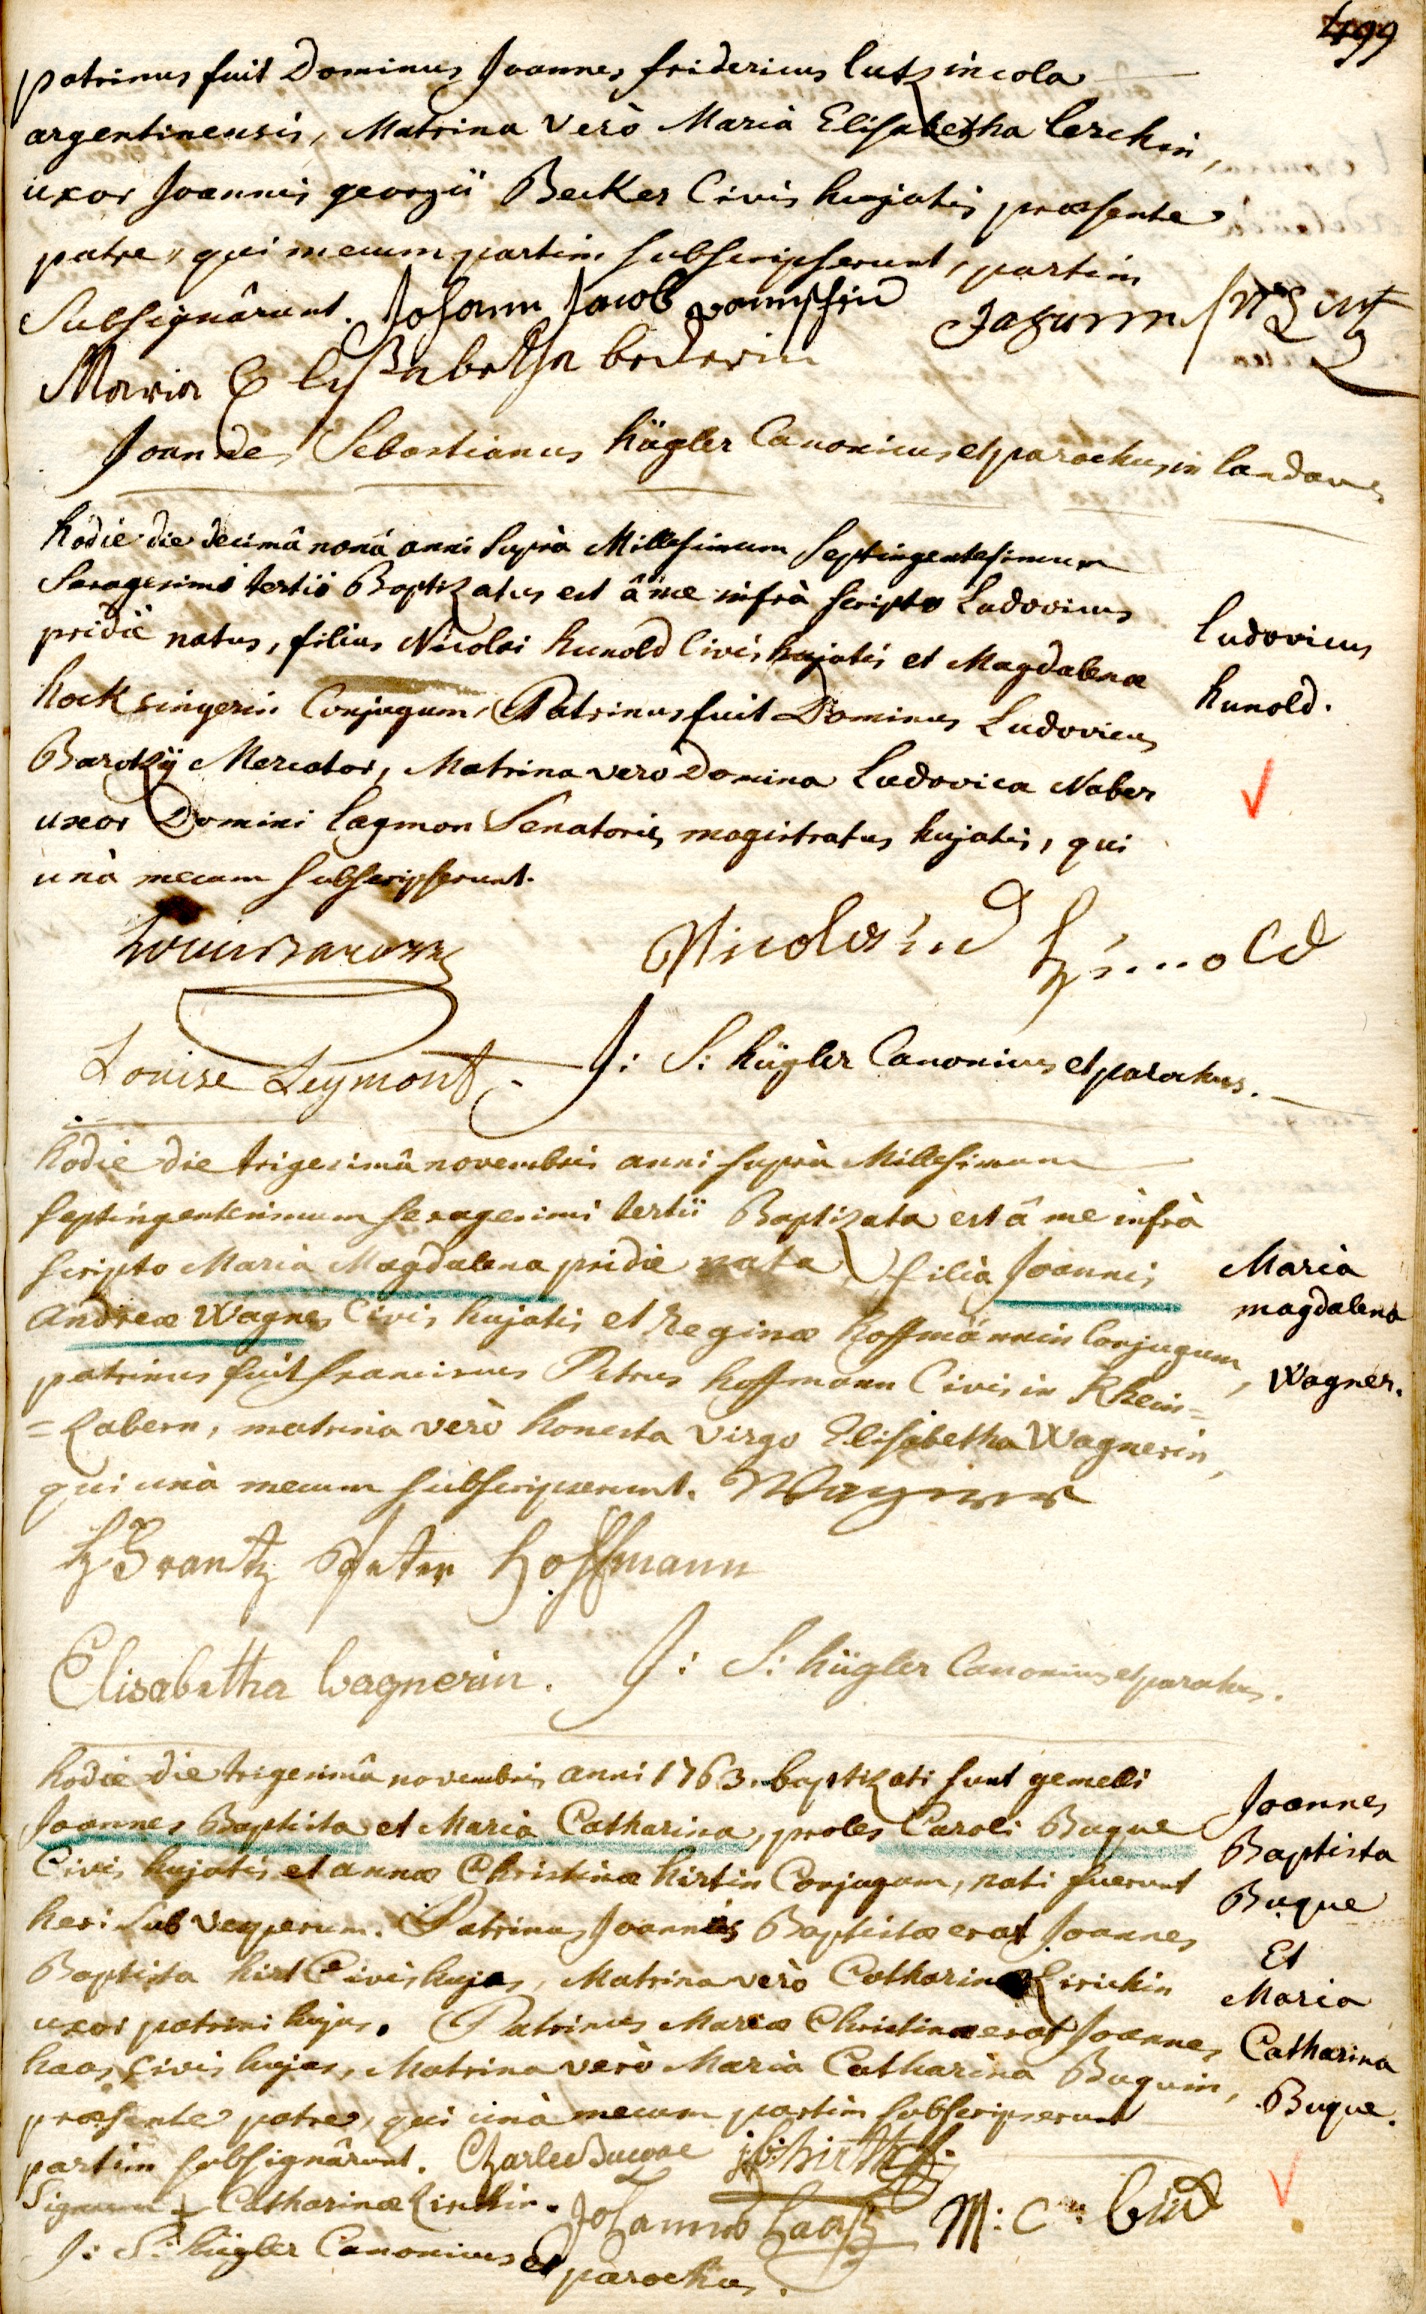 499
patrinus fuit Dominus Joannes fridericus lutz incola
argentinensis, Matrina verò Maria Elisabetha lerchin,
uxor Joannis georgii Becker Civis hujatis præsente
patre, qui mecum partim subscripserunt, partim
Subsignârunt. Johann Jacob
Maria Elisabetha beckerin
Joannes Sebastianus hügler Canonicus et parochus in landau
hodie die decimâ nonâ anni Suprà Millesimum Septingentesimum
Sexagesimi tertii Baptizatus est â me infrà scripto Ludovicus
pridiè natus, filius Nicolai hunold Civis hujatis et Magdalenæ
hocksingerin Conjugum, Patrinus fuit Dominus Ludovicus
Barozzy Mercator, Matrina verò Domina Ludovica Naber
uxor Domini lagmon Senatoris magistratus hujatis, qui
unà mecum subscripserunt.
Ludovicus
hunold.
Louis Barozzy
Louise Leymont J: S: hügler Canonicus et parochus.
hodie die trigesimâ novembris anni suprà Millesimum
septingentesimum sexagesimi tertii Baptizata est â me infrà
scripto Maria Magdalena pridiè nata, filia Joannis
Andreæ Wagner Civis hujatis et Reginæ hoffmännin Conjugum,
patrinus fuit franciscus Petrus hoffmann Civis in Rhein=
=zabern, matrina verò honesta virgo Elisabetha Wagnerin,
qui unà mecum subscripserunt. Wagner
Maria
magdalena
Wagner.
Frantz Peter Hoffmann
Elisabetha Wagnerin. J: S: hügler Canonicus et parochus.
hodie die trigesimâ novembris anni 1763. baptizati sunt gemelli
Joannes Baptista et Maria Catharina, proles Caroli Buque
Civis hujatis et annæ Christinæ hirtin Conjugum, nati fuerunt
heri sub vesperum. Patrinus Joannis Baptistæ erat Joannes
Baptista hirt Civis hujas, Matrina verò Catharina Zirichin
uxor patrini hujus. Patrinus Mariæ Christinæ erat Joannes
haas Civis hujas, Matrina verò Maria Catharina Buquin,
præsente patre, qui unà mecum partim subscripserunt
partim subsignârunt. Charle Buque jb: hirth
Signum + Catharinæ Zirichin. Johannes haas M: C:
J: S: hügler Canonicus et parochus.
Joannes
Baptista
Buque
Et
Maria
Catharina
Buque.